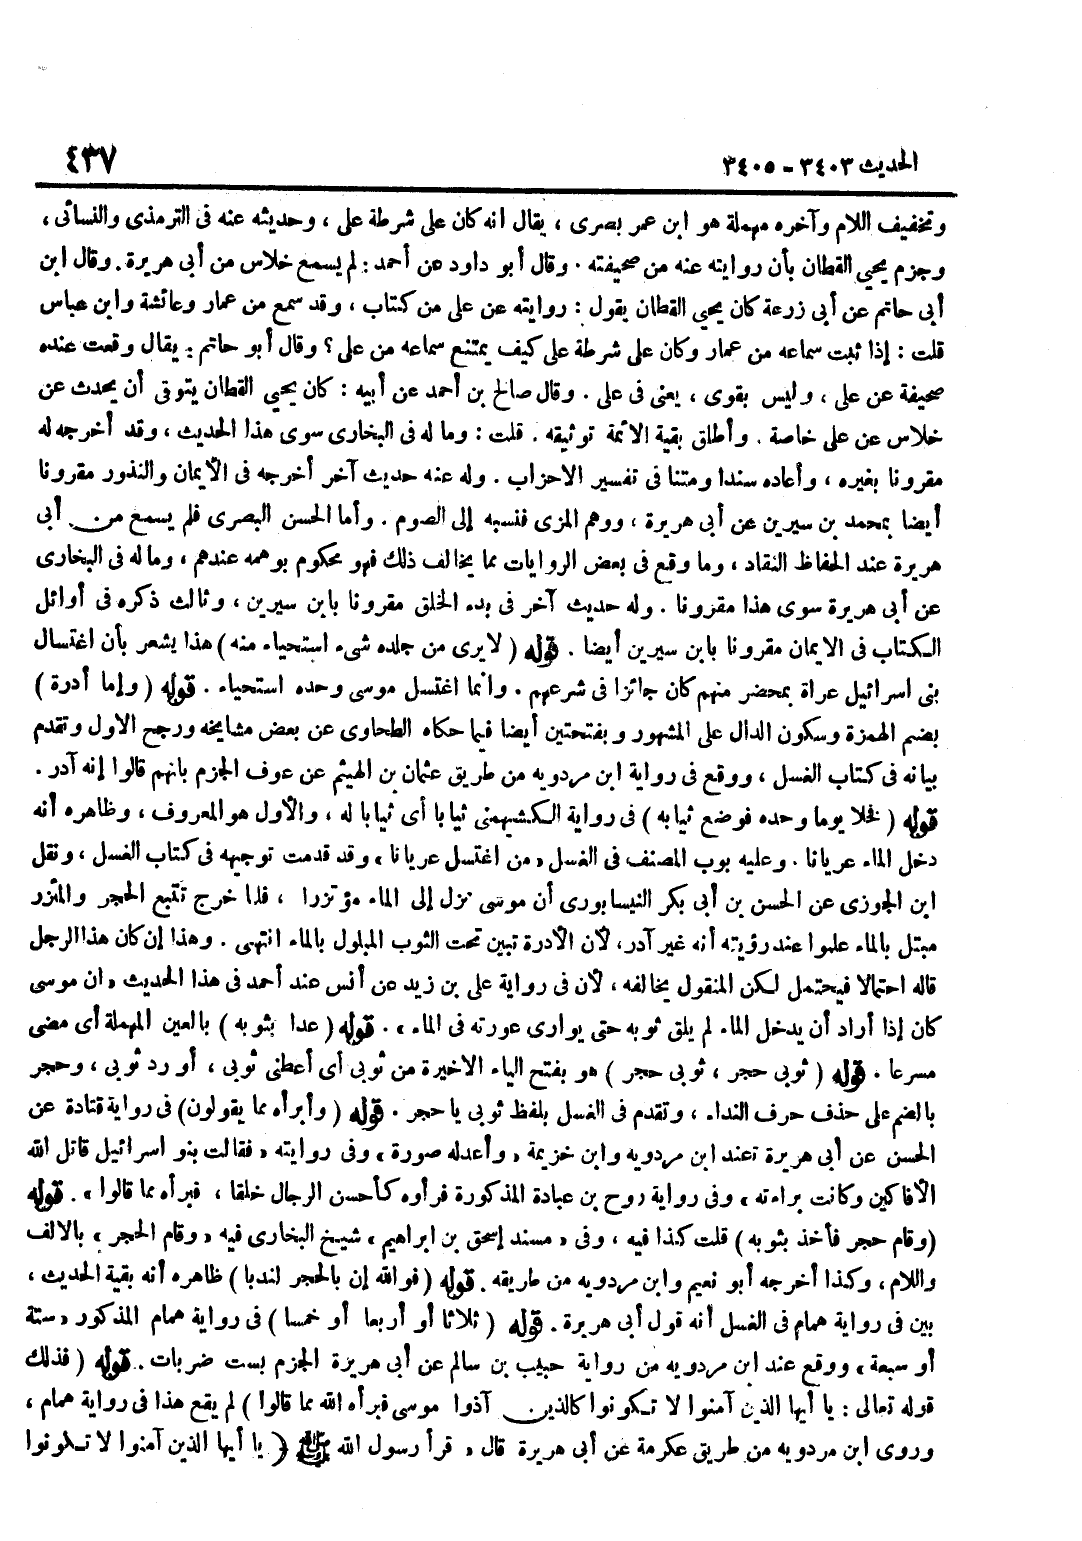 الحديث ٣٤٠٣ - ٣٤٠٥
٤٣٧
وتخفيف اللام وآخره مهملة هو ابن عمر بصرى ، يقال انه كان على شرطة على ، وحديثه عنه فى الترمذى والنسائى ،
وجزم يحي القطان بأن روايته عنه من صحيفته . وقال أبو داود عن أحمد : لم يسمع خلاس من أبى هريرة . وقال ابن
أبى حاتم عن أبى زرعة كان يحي القطان يقول : روايته عن على من كتاب ، وقد سمع من عمار وعائشة وابن عباس
قلت : إذا ثبت سماعه من عمار وكان على شرطة على كيف يمتنع سماعه من على ؟ وقال أبو حاتم : يقال وقعت عنده
صحيفة عن على ، وليس بقوى ، يعنى فى على . وقال صالح بن أحمد عن أبيه : كان يحي القطان يتوقى أن يحدث عن
خلاس عن على خاصة . وأطلق بقية الائمة توثيقه . قلت : وما له فى البخارى سوى هذا الحديث ، وقد أخرجه له
مقرونا بغيره ، وأعاده سندا ومتنا فى تفسير الاحزاب . وله عنه حديث آخر أخرجه فى الأيمان والنذور مقرونا
أيضا بمحمد بن سيرين عن أبى هريرة ، ووهم المزى فنسبه إلى الصوم . وأما الحسن البصرى فلم يسمع من أبى
هريرة عند الحفاظ النقاد ، وما وقع فى بعض الروايات مما يخالف ذلك فهو محكوم بوهمه عندهم ، وما له فى البخارى
عن أبى هريرة سوى هذا مقرونا . وله حديث آخر فى بدء الخلق مقرونا بابن سيرين ، وثالث ذكره فى أوائل
الكتاب فى الايمان مقرونا بابن سيرين أيضا . قوله ( لا يرى من جلده شىء استحياء منه ) هذا يشعر بأن اغتسال
بنى اسرائيل عراة بمحضر منهم كان جائزا فى شرعهم . وانما اغتسل موسى وحده استحياء . قوله ( وإما أدرة )
بضم الهمزة وسكون الدال على المشهور وبفتحتين أيضا فيما حكاه الطحاوى عن بعض مشايخه ورجح الاول وتقدم
بيانه فى كتاب الغسل ، ووقع فى رواية ابن مردويه من طريق عثمان بن الهيثم عن عوف الجزم بانهم قالوا إنه آدر .
قوله ( فخلا يوما وحده فوضع ثيابه ) فى رواية الكشميهنى ثيابا أى ثيابا له ، والأول هو المعروف ، وظاهره أنه
دخل الماء عريانا . وعليه بوب المصنف فى الغسل « من اغتسل عريانا » وقد قدمت توجيهه فى كتاب الغسل ، ونقل
ابن الجوزى عن الحسن بن أبى بكر النيسابورى أن موسى نزل إلى الماء مؤتزرا ، فلما خرج تتبع الحجر والمئزر
مبتل بالماء علموا عند رؤيته أنه غير آدر ، لأن الأدرة تبين تحت الثوب المبلول بالماء انتهى . وهذا إن كان هذا الرجل
قاله احتمالا فيحتمل لكن المنقول يخالفه ، لأن فى رواية على بن زيد عن أنس عند أحمد فى هذا الحديث « ان موسى
كان إذا أراد أن يدخل الماء لم يلق ثوبه حتى يوارى عورته فى الماء » . قوله ( عدا بثوبه ) بالعين المهملة أى مضى
مسرعا . قوله ( ثوبى حجر ، ثوبى حجر ) هو بفتح الياء الاخيرة من ثوبى أى أعطنى ثوبى ، أو رد ثوبى ، وحجر
بالضم على حذف حرف النداء ، وتقدم فى الغسل بلفظ ثوبى يا حجر . قوله ( وأبرأه مما يقولون ) فى رواية قتادة عن
الحسن عن أبى هريرة عند ابن مردويه وابن خزيمة « وأعدله صورة » وفى روايته « فقالت بنو اسرائيل قاتل الله
الأفاكين وكانت براءته » وفى رواية روح بن عبادة المذكورة فرأوه كأحسن الرجال خلقا ، فبرأه مما قالوا » . قوله
( وقام حجر فأخذ بثوبه ) قلت كذا فيه ، وفى « مسند إسحق بن ابراهيم » شيخ البخارى فيه « وقام الحجر » بالالف
واللام ، وكذا أخرجه أبو نعيم وابن مردويه من طريقه . قوله ( فوالله إن بالحجر لندبا ) ظاهره أنه بقية الحديث ،
بين فى رواية همام فى الغسل أنه قول أبى هريرة . قوله ( ثلاثا أو أربعا أو خمسا ) فى رواية همام المذكور « ستة
أو سبعة » ووقع عند ابن مردويه من رواية حبيب بن سالم عن أبى هريرة الجزم بست ضربات . قوله ( فذلك
قوله تعالى : يا أيها الذين آمنوا لا تكونوا كالذين آذوا موسى فبرأه الله مما قالوا ) لم يقع هذا فى رواية همام ،
وروى ابن مردويه من طريق عكرمة عن أبى هريرة قال « قرأ رسول الله ﷺ ( يا أيها الذين آمنوا لا تكونوا